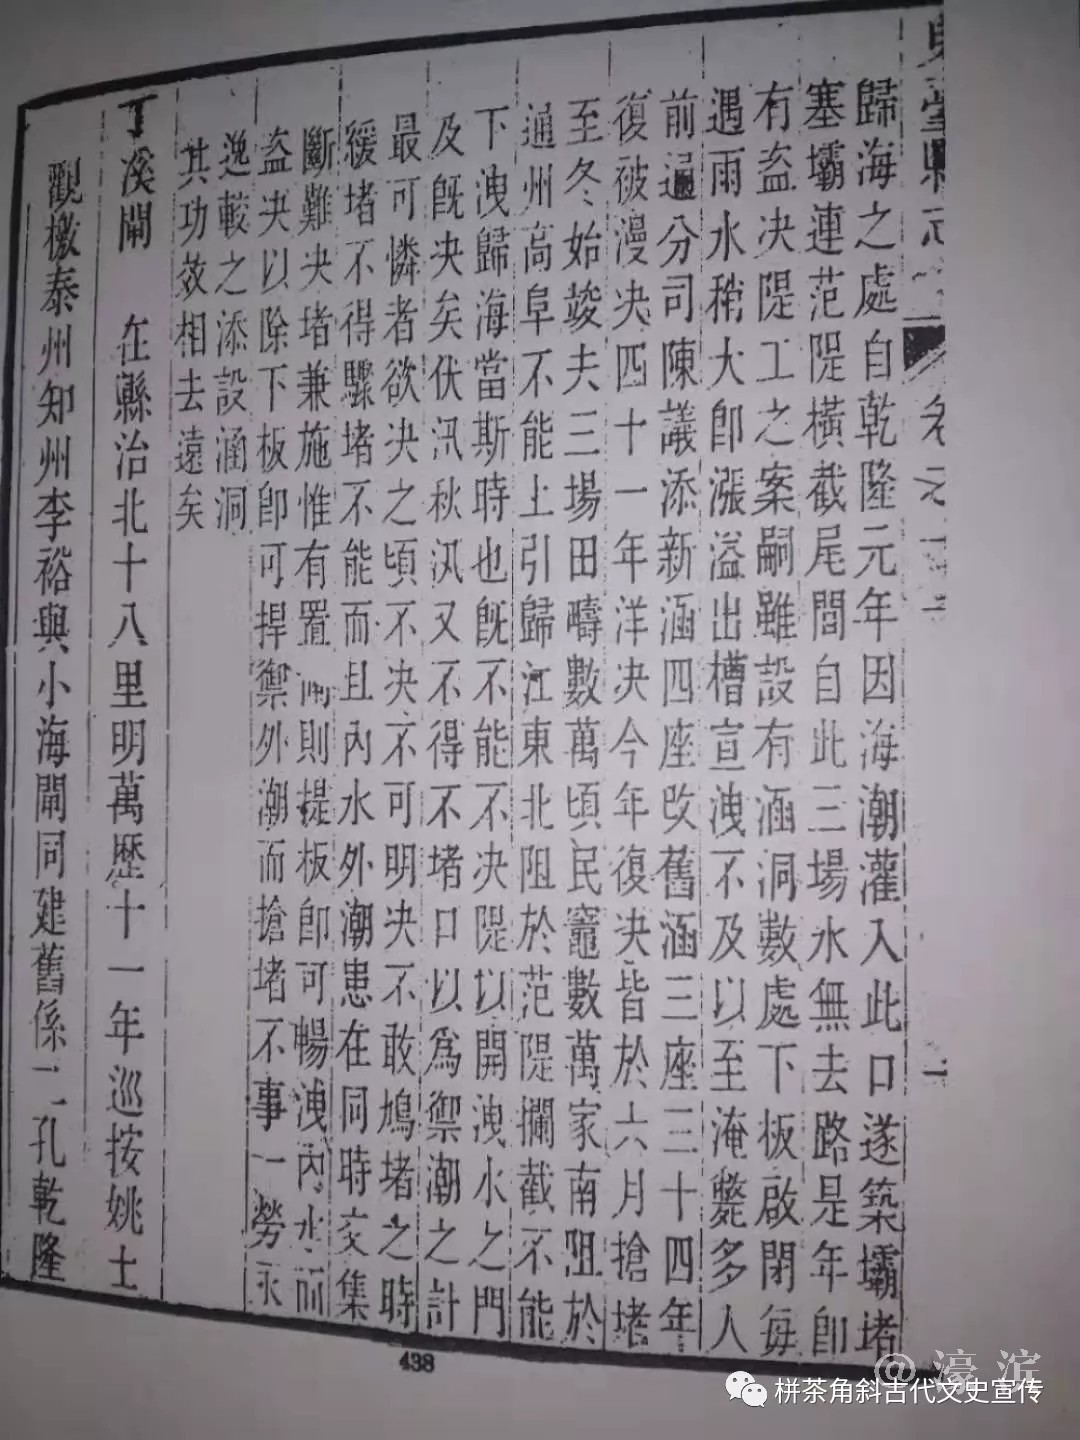 歸海之處自乾隆元年因海潮灌入此口遂築壩堵
塞壩連范隄橫截尾閭自此三場水無去路是年卽
有盜决隄工之案嗣雖設有涵洞數處下板啟閉每
遇雨水稍大卽漲溢出槽宣洩不及以至淹斃多人
前通分司陳議添新涵四座改舊涵三座三十四年
復被漫决四十一年洋决今年復决皆於六月搶堵
至冬始竣夫三場田疇數萬頃民竈數萬家南阻於
通州高阜不能上引歸江東北阻於范隄攔截不能
下洩歸海當斯時也旣不能不决隄以開洩水之門
及旣决矣伏汛秋汛又不得不堵口以爲禦潮之計
最可憐者欲决之頃不决不可明决不敢鳩堵之時
緩堵不得驟堵不能而且內水外潮患在同時交集
斷難决堵兼施惟有置閘則提板卽可暢洩內水而
盜决以除下板卽可捍禦外潮而搶堵不事一勞永
逸較之添設涵洞
其功效相去遠矣
丁溪閘 在縣治北十八里明萬歷十一年巡按姚士
觀檄泰州知州李裕與小海閘同建舊係二孔乾隆
438
@濠滨
栟茶角斜古代文史宣传